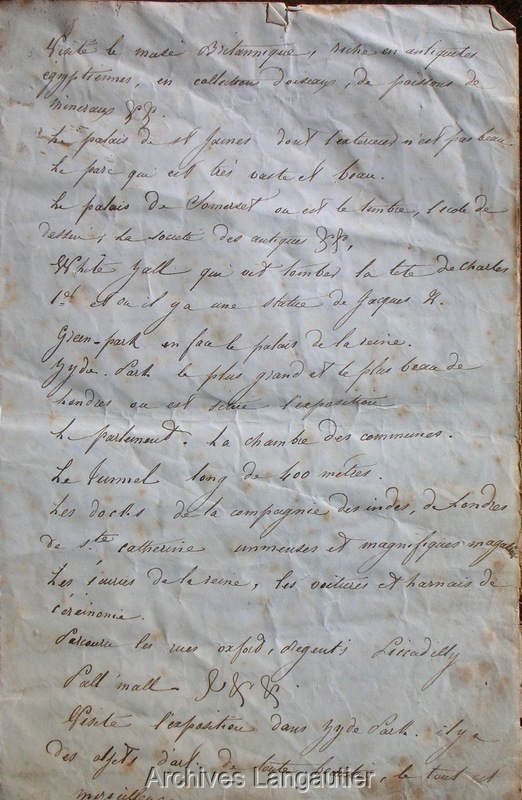 Visité le musé Britannique, riche en antiquités
egyptiennes, en collections d'oiseaux, de poissons de
mineraux &&.
Le palais de st James dont l'exterieur n'est pas beau
Le parc qui est très vaste et beau.
Le palais de Somerset ou est le timbre, l'ecole de
dessin, La societé des antiques &&,
White hall qui vit tomber la tete de Charles
1er et ou il y a une statue de Jacques 2.
Green-park en face le palais de la reine.
hyde-Park le plus grand et le plus beau de
Londres ou est située l'exposition
Le parlement. La chambre des communes.
Le tunnel long de 400 mètres.
Les docks de la compagnie des indes, de Londres
de Ste catherine immenses et magnifiques magasins
Les écuries de la reine, les voitures et harnais de
cérémonie.
Parcouru les rues oxford, regent's Piccadilly
Pall mall &&&.
Visité l'exposition dans hyde Park. il y a
des objets d'art de toute beauté, le tout est
merveilleux
Archives Langautier